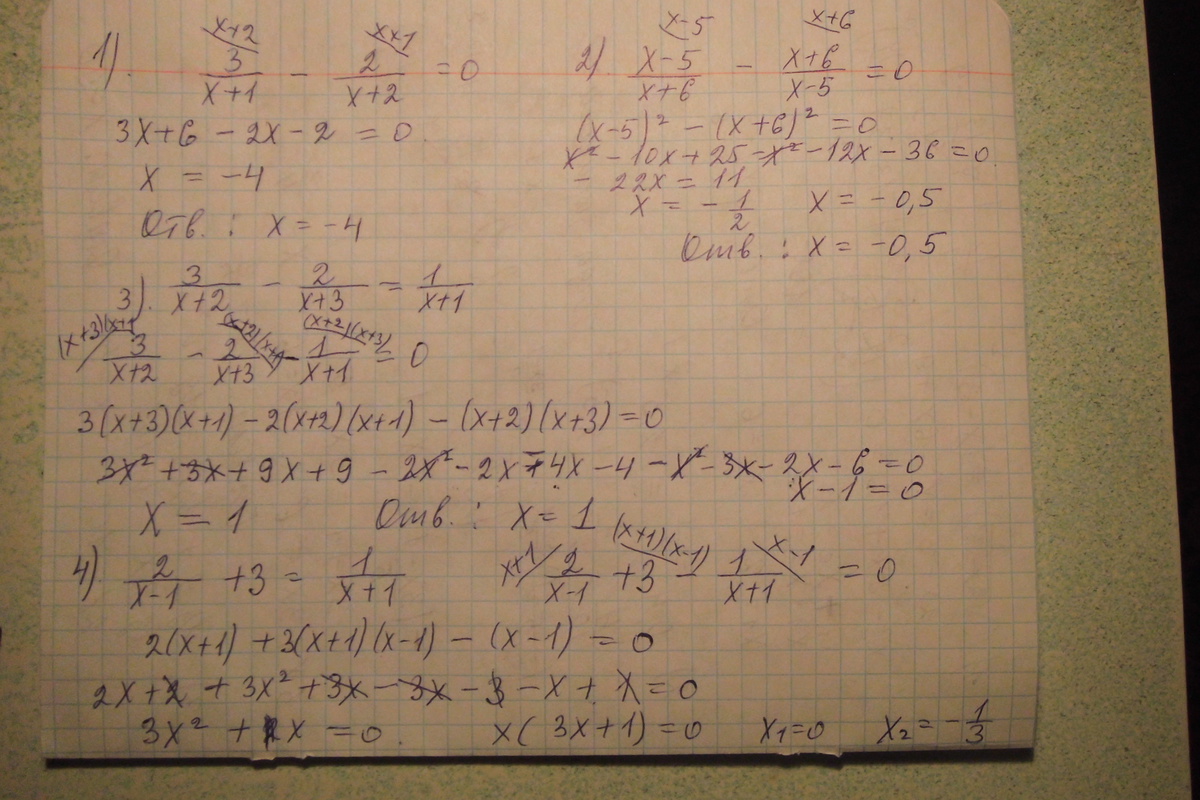 1). 3/(x+1) (x+2) - 2/(x+2) (x+1) = 0
3x+6 - 2x - 2 = 0.
x = -4
Отв. : x = -4
2). (x-5)/(x+6) (x-5) - (x+6)/(x-5) (x+6) = 0
(x-5)² - (x+6)² = 0
x² - 10x + 25 - x² - 12x - 36 = 0.
- 22x = 11
x = - 1/2 x = -0,5
Отв. : x = -0,5
3). 3/(x+2) - 2/(x+3) = 1/(x+1)
(x+3)(x+1 3/(x+2) - (x+2)(x+1) 2/(x+3) - (x+2)(x+3) 1/(x+1) = 0
3(x+3)(x+1) - 2(x+2)(x+1) - (x+2)(x+3) = 0
3x² + 3x + 9x + 9 - 2x² - 2x - 4x - 4 - x² - 3x - 2x - 6 = 0
x - 1 = 0
x = 1 Отв. : x = 1
4) 2/(x-1) + 3 = 1/(x+1) x+1 2/(x-1) + (x+1)(x-1) 3 - x-1 1/(x+1) = 0
2(x+1) + 3(x+1)(x-1) - (x-1) = 0
2x + 2 + 3x² + 3x - 3x - 3 - x + 1 = 0
3x² + x = 0. x( 3x+1) = 0 x₁=0 x₂= - 1/3